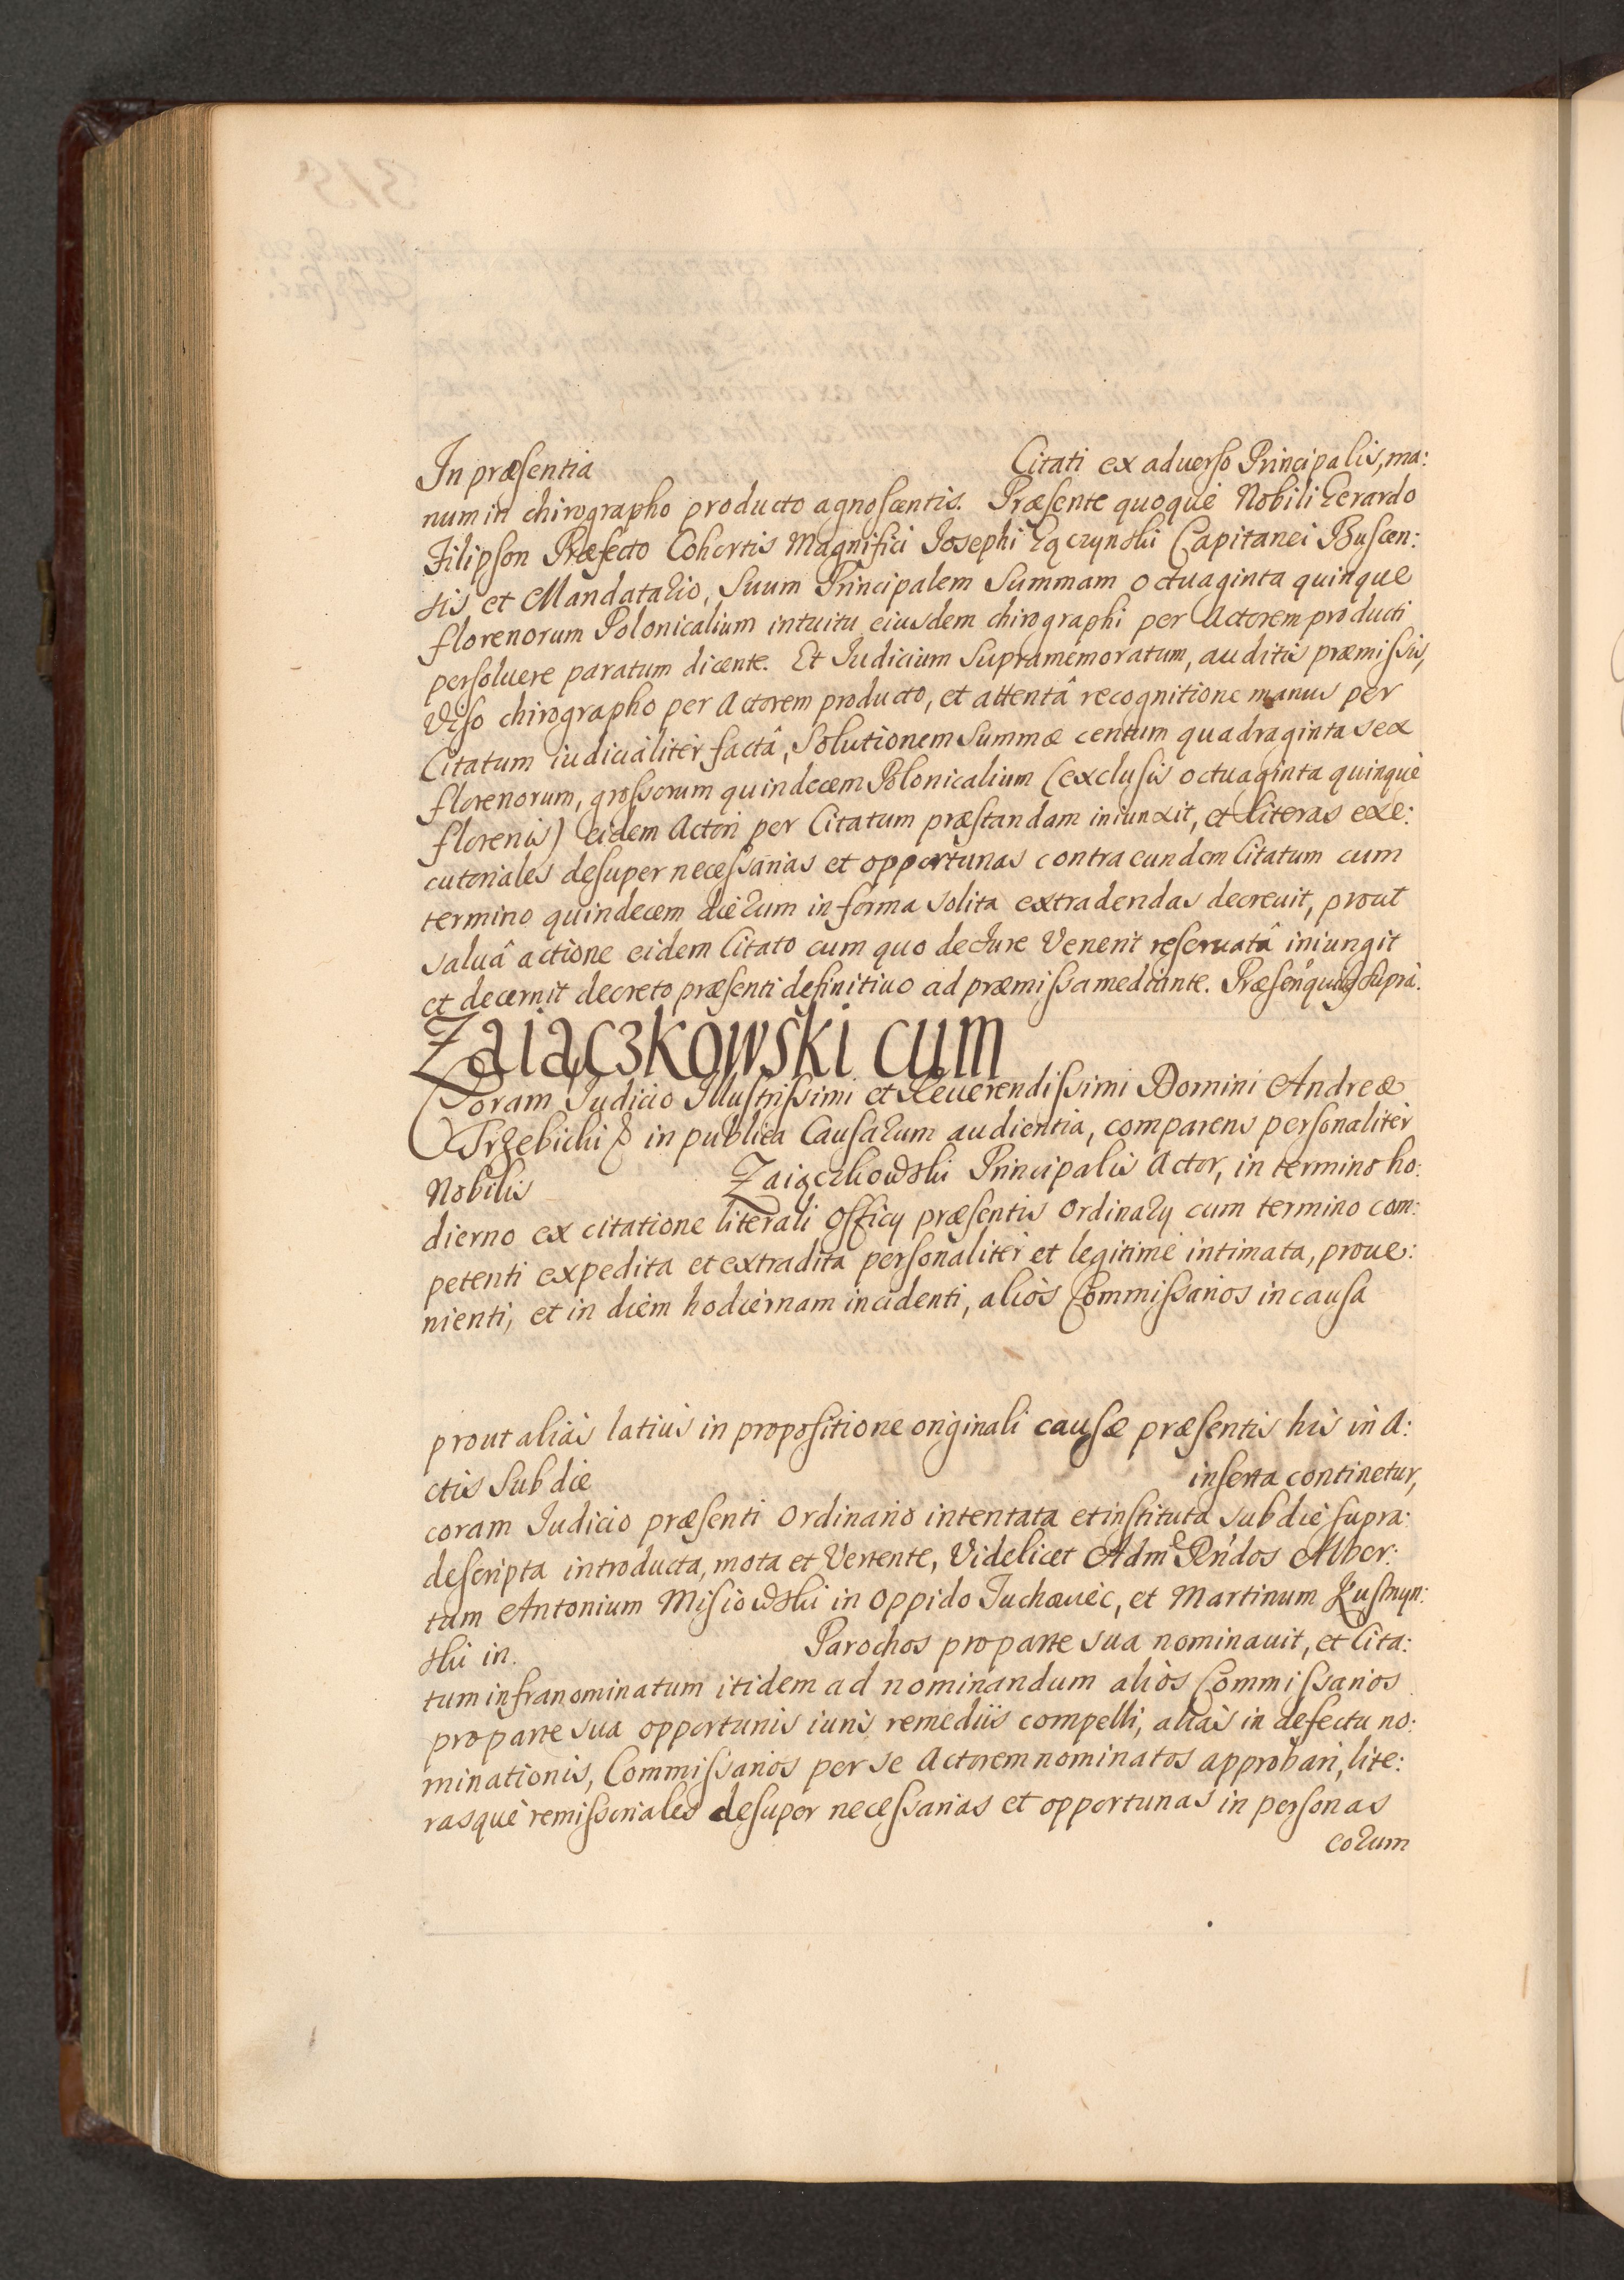 In præsentia Citati ex aduerso Principalis, ma:
num in chirographo producto agnoscentis. Præsente quoquè Nobili Gerardo
Filipson Præfecto Cohortis Magnifici Josephi Łączynski Capitanei Buscen:
sis et Mandatario, Suum Principalem Summam octuaginta quinque
florenorum Polonicalium intuitu eiusdem chirographi per Actorem producti
persoluere paratum dicente. Et Judicium Supramemoratum, auditis præmissis,
Viso chirographo per Actorem producto, et attentâ recognitione manus per
Citatum iudicialitèr factâ, Solutionem Summæ centum quadraginta sex
florenorum, grossorum quindecem Polonicalium (exclusis octuaginta quinquè
florenis) eidem Actori per Citatum præstandam iniunxit, et literas exe:
cutoriales desuper necessarias et opportunas contra eundem Citatum cum
termino quindecem dierum in forma solita extradendas decreuit, prout
saluâ actione eidem Citato cum quo de Jure Venerit reseruatâ iniungit
et decernit decreto præsenti definitiuo ad præmissa mediante. Præsen quibus suprà.
Zaiączkowski cum
Coram Judicio Illustrissimi et Reuerendissimi Domini Andreæ
Trzebicki & in publica Causarum audientia, comparens personalitèr
Nobilis Zaiączkowski Principalis Actor, in termino ho:
dierno ex citatione literali Officij præsentis Ordinarij cum termino com:
petenti expedita et extradita personalitèr et legitimè intimata, proue:
nienti, et in diem hodiernam incidenti, aliòs Commissarios in causa
prout aliàs latiùs in propositione originali causæ præsentis his in A:
ctis Sub die inserta continetur,
coram Judicio præsenti Ordinario intentata et instituta sub die supra:
descripta introducta, mota et Vertente, Videlicet Adm Rndos Alber:
tum Antonium Misiowski in Oppido Tuchouiec, et Martinum Kustryn:
ski in. Parochos pro parte sua nominauit, et Cita:
tum infranominatum itidem ad nominandum aliòs Commissarios
pro parte sua opportunis iuris remediis compelli, aliàs in defectu no:
minationis, Commissarios per se Actorem nominatos approbari, lite:
rasquè remissoriales desuper necessarias et opportunas in personas
eorum